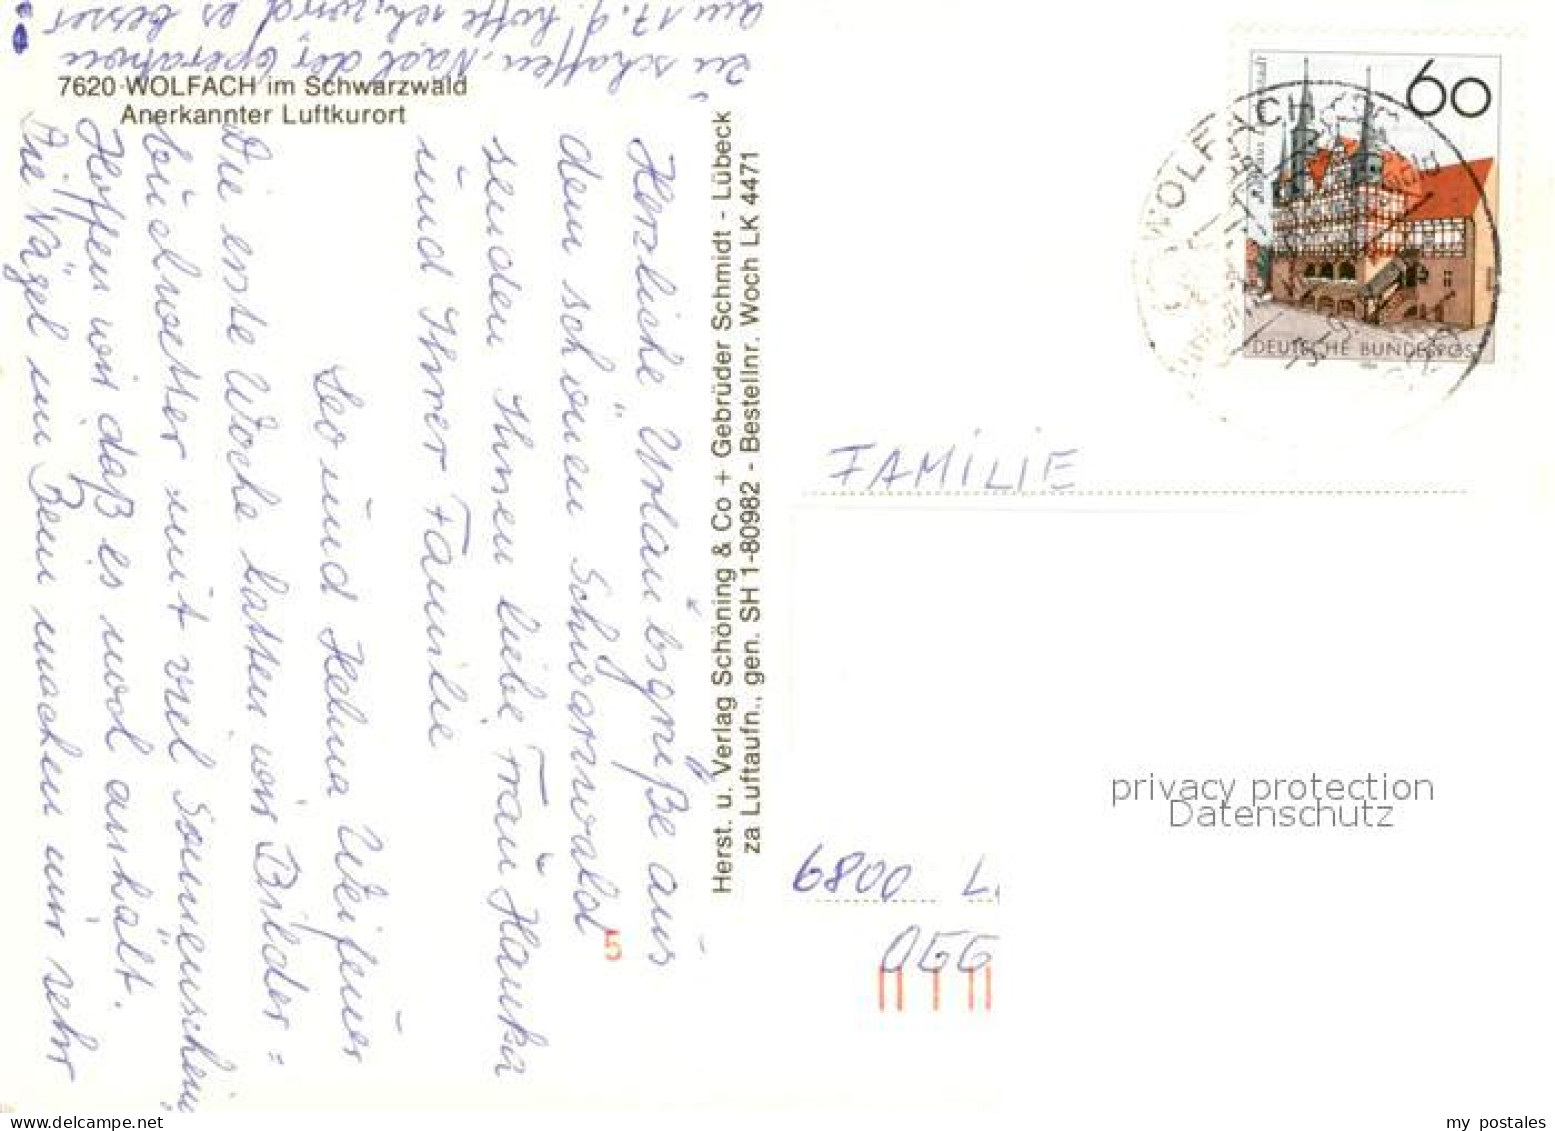 7620 WOLFACH im Schwarzwald
Anerkannter Luftkurort
Herzliche Urlaubsgrüße aus
dem schönen Schwarzwald
senden Ihnen liebe Frau Hanka
und Ihrer Familie
Leo und Helma
Die erste Woche hatten wir Bilder =
buchwetter mit viel Sonnenschein,
Hoffen wir daß es noch anhält.
Die Nägel im Bein machen mir sehr
zu schaffen. Nach der Operation
am 17. 9. hoffe ich, wird es besser
Herst. u. Verlag Schöning & Co + Gebrüder Schmidt - Lübeck
za Luftaufn., gen. SH 1-80982 - Bestellnr. Woch LK 4471
60
DEUTSCHE BUNDESPOST
WOLFACH
FAMILIE
privacy protection
Datenschutz
6800 L
OGG
5
my postales